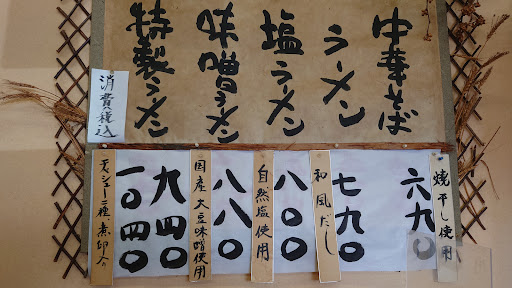 中華そば
ラーメン
塩ラーメン
味噌ラーメン
特製ラーメン
消費税込
焼干し使用
六九〇
七九〇
和風だし
八〇〇
自然塩使用
八八〇
国産大豆味噌使用
九四〇
一〇四〇
チャーシュー二種、煮卵入り